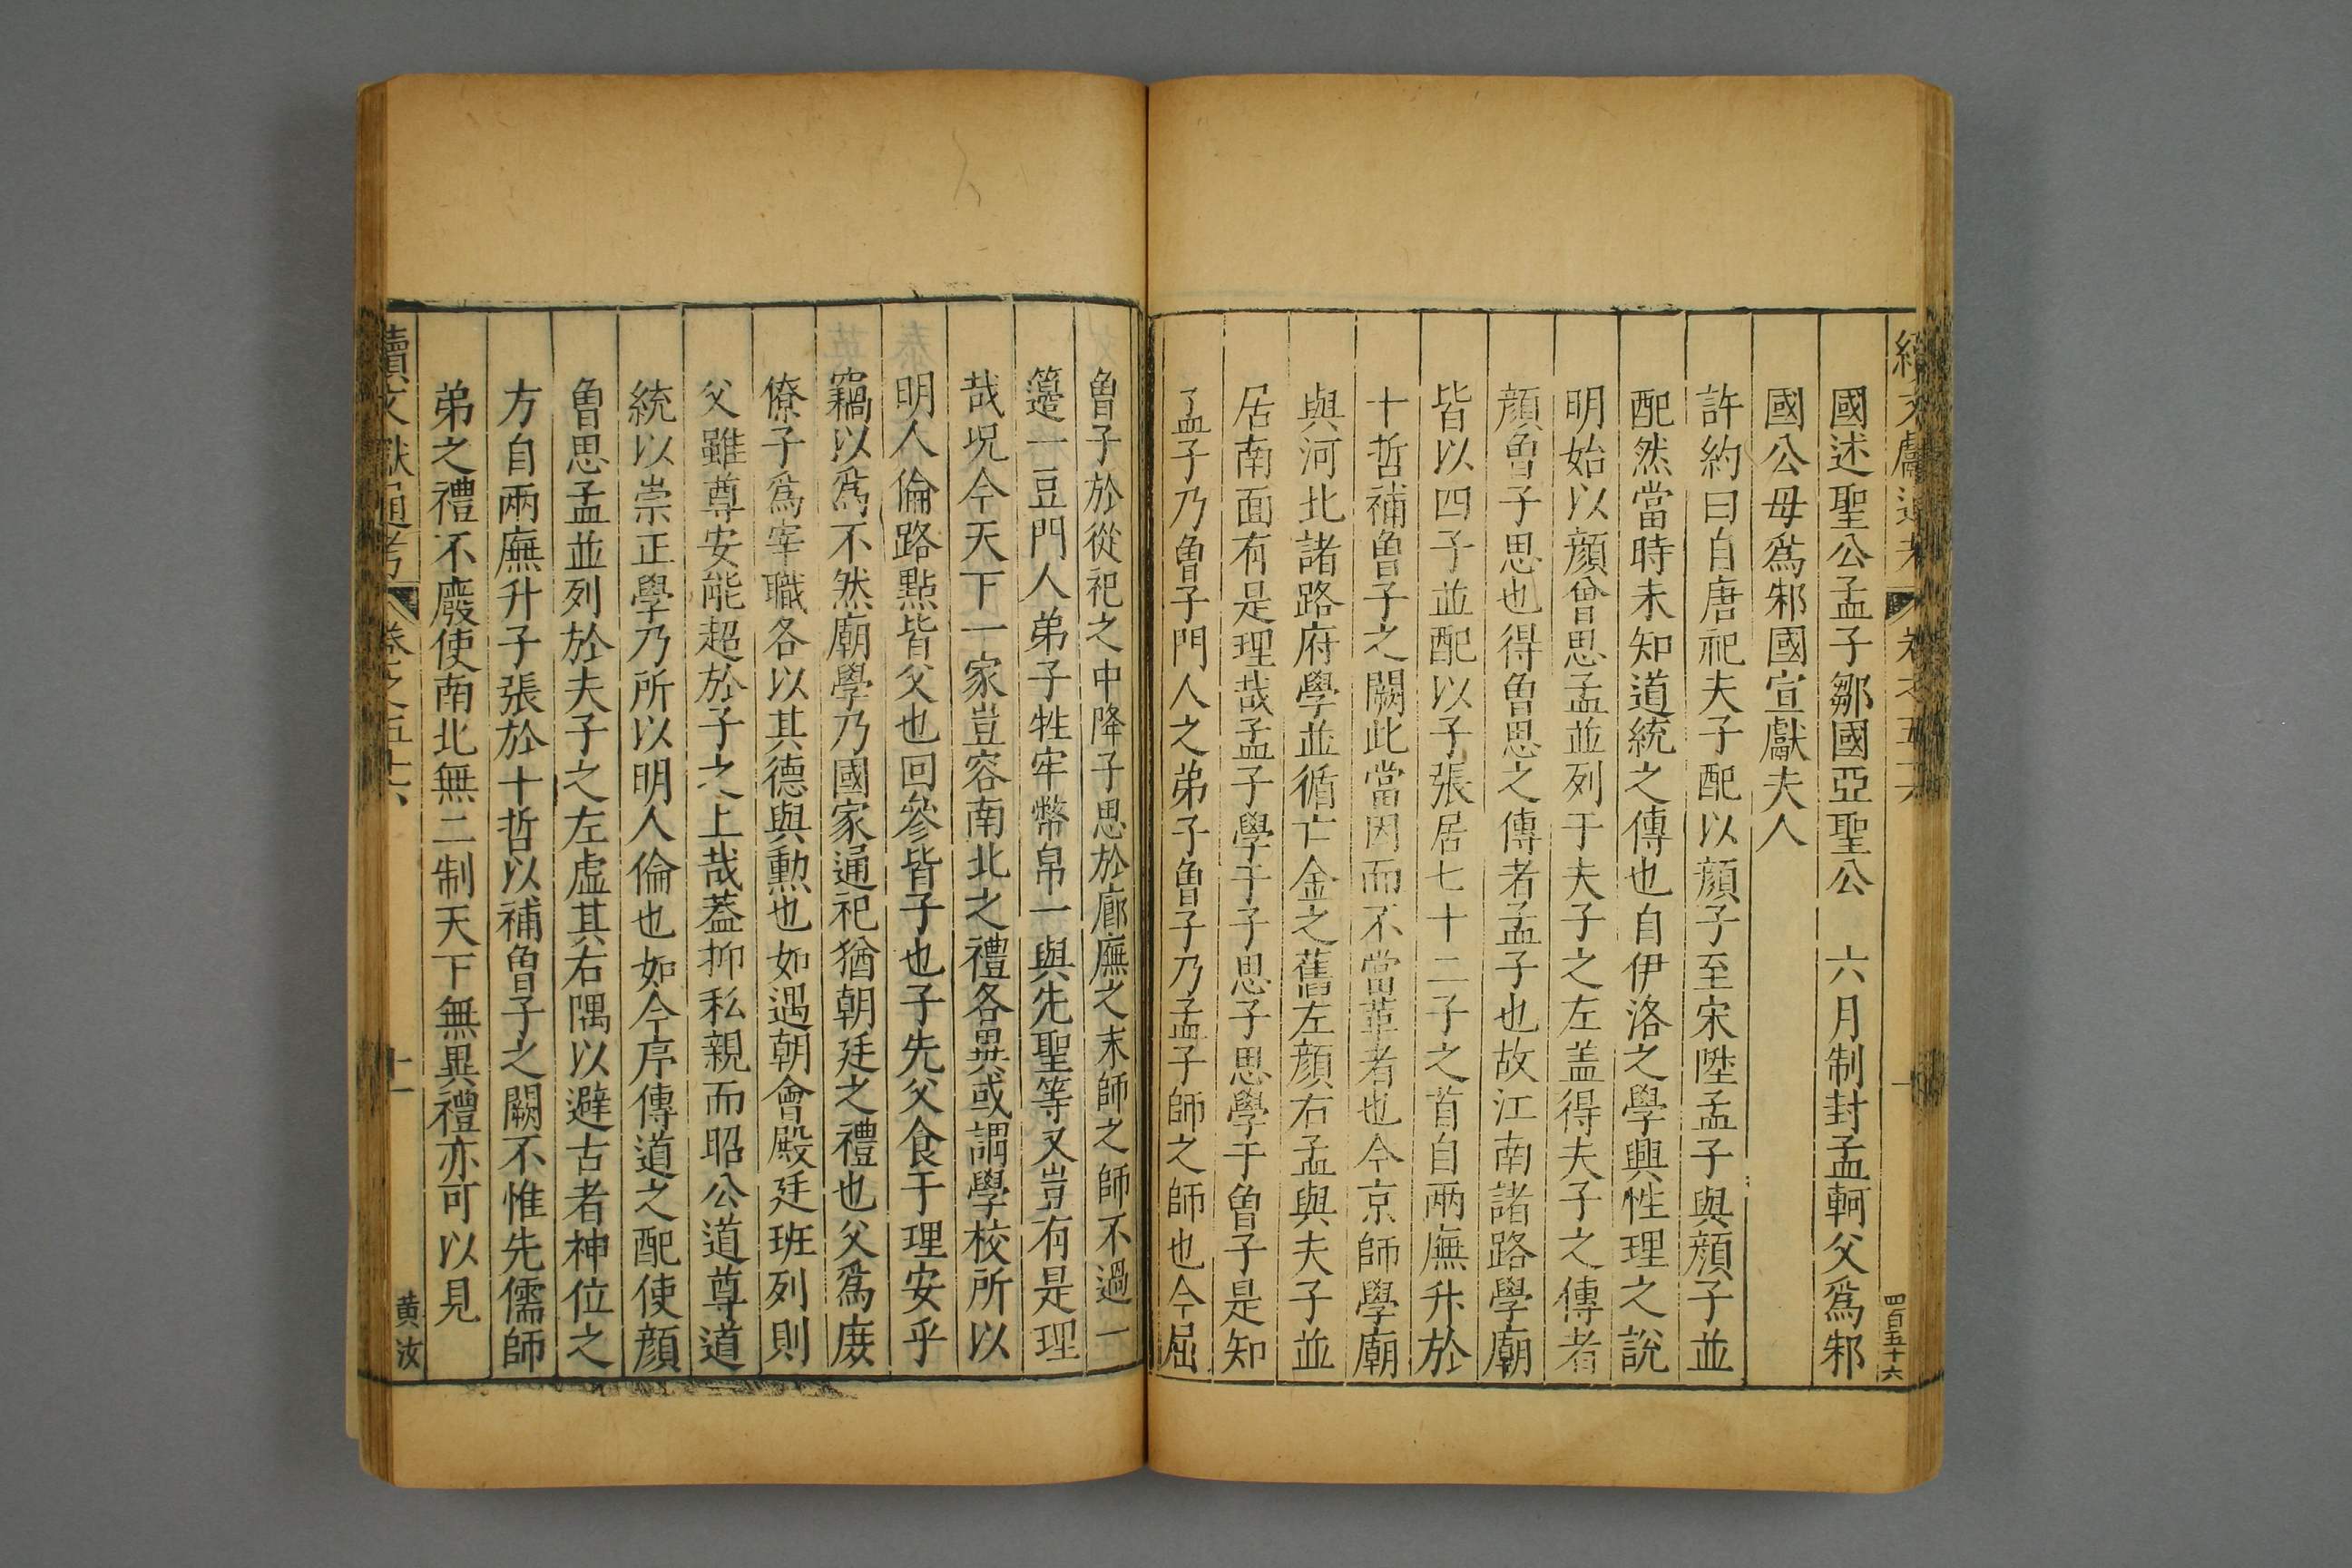 國述聖公孟子鄒國亞聖公　六月制封孟軻父爲邾
國公母爲邾國宣獻夫人
許約曰自唐祀夫子配以顔子至宋陞孟子與顔子並
配然當時未知道統之傳也自伊洛之學興性理之說
明始以顔曾思孟並列于夫子之左盖得夫子之傳者
顔魯子思也得魯思之傳者孟子也故江南諸路學廟
皆以四子並配以子張居七十二子之首自兩廡升於
十哲補魯子之闕此當因而不當革者也今京師學廟
與河北諸路府學並循亡金之舊左顔右孟與夫子並
居南面有是理哉孟子學于子思子思學于魯子是知
孟子乃魯子門人之弟子魯子乃孟子師之師也今屈
魯子於從祀之中降子思於廊廡之末師之師不過一
籩一豆門人弟子牲牢幣帛一與先聖等又豈有是理
哉况今天下一家豈容南北之禮各異或謂學校所以
明人倫路點皆父也回參皆子也子先父食于理安乎
竊以爲不然廟學乃國家通祀猶朝廷之禮也父爲庶
僚子爲宰職各以其德與勲也如遇朝會殿廷班列則
父雖尊安能超於子之上哉葢抑私親而昭公道尊道
統以崇正學乃所以明人倫也如今序傳道之配使顔
魯思孟並列於夫子之左虛其右隅以避古者神位之
方自兩廡升子張於十哲以補魯子之闕不惟先儒師
弟之禮不廢使南北無二制天下無異禮亦可以見
續文獻通考　卷之五十六　十一　黄汝
四百五十六